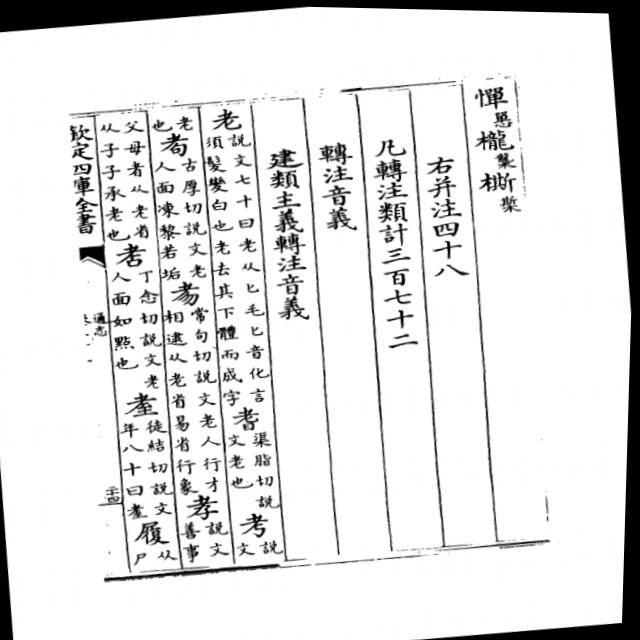 憚愚櫳檕㯕檕
右并注四十八
凡轉注類計三百七十二
轉注音義
建類主義轉注音義
老說文七十曰老从匕毛匕音化言須髮變白也老去其下體而成字耆渠脂切說文老也考說文
老也耇古厚切說文老人面凍黎若垢耉常句切說文老人行才相逮从老省易省行象孝說文善事
父母者从老省从子子承老也㸃丁念切說文老人面如點也耋徒結切說文年八十曰耋履从尸
欽定四庫全書
通志
三十四